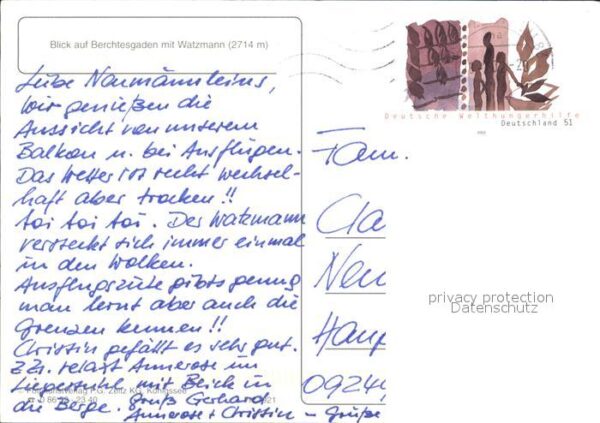 Blick auf Berchtesgaden mit Watzmann (2714 m)
Liebe Naumännleins,
wir genießen die
Aussicht von unserem
Balkon u. bei Ausflügen.
Das Wetter ist recht wechsel-
haft aber trocken!!
toi toi toi. Der Watzmann
versteckt sich immer einmal
in den Wolken.
Ausflugsziele gibts genug
man lernt aber auch die
Grenzen kennen!!
Christin gefällt es sehr gut.
Zz. relaxt Annerose im
Liegestuhl mit Blick in
die Berge. Gruß Gerhard
Annerose + Christin - Grüße
Deutsche Welthungerhilfe
Deutschland 51
Fam.
Cla
Neu
Haup
0924
privacy protection
Datenschutz